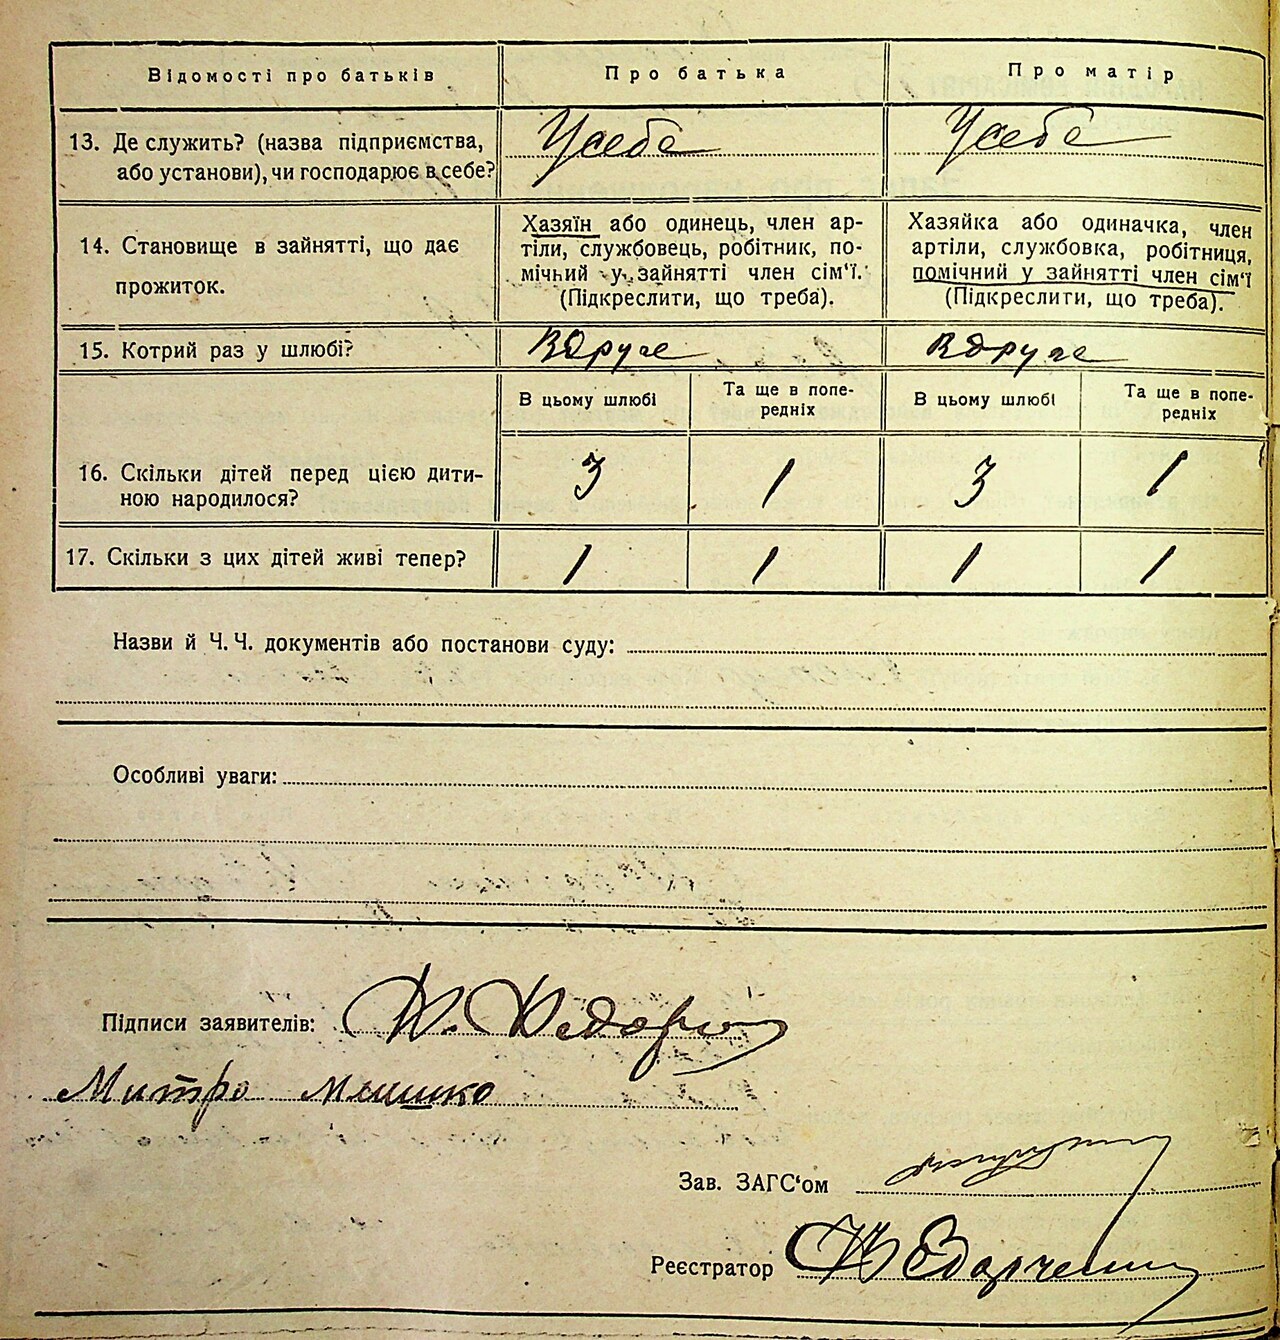 Відомості про батьків
Про батька
Про матір
13. Де служить? (назва підприємства,
або установи), чи господарює в себе?
У себе
У себе
14. Становище в зайнятті, що дає
прожиток.
Хазяїн або одинець, член ар-
тіли, службовець, робітник, по-
мічний у зайнятті член сім'ї.
(Підкреслити, що треба).
Хазяйка або одиначка, член
артіли, службовка, робітниця,
помічний у зайнятті член сім'ї
(Підкреслити, що треба).
15. Котрий раз у шлюбі?
Вдруге
Вдруге
В цьому шлюбі
Та ще в попе-
редніх
В цьому шлюбі
Та ще в попе-
редніх
16. Скільки дітей перед цією дити-
ною народилося?
3
1
3
1
17. Скільки з цих дітей живі тепер?
1
1
1
1
Назви й Ч. Ч. документів або постанови суду:
Особливі уваги:
Підписи заявителів:
Митро Мишко
Зав. ЗАГС'ом
Реєстратор